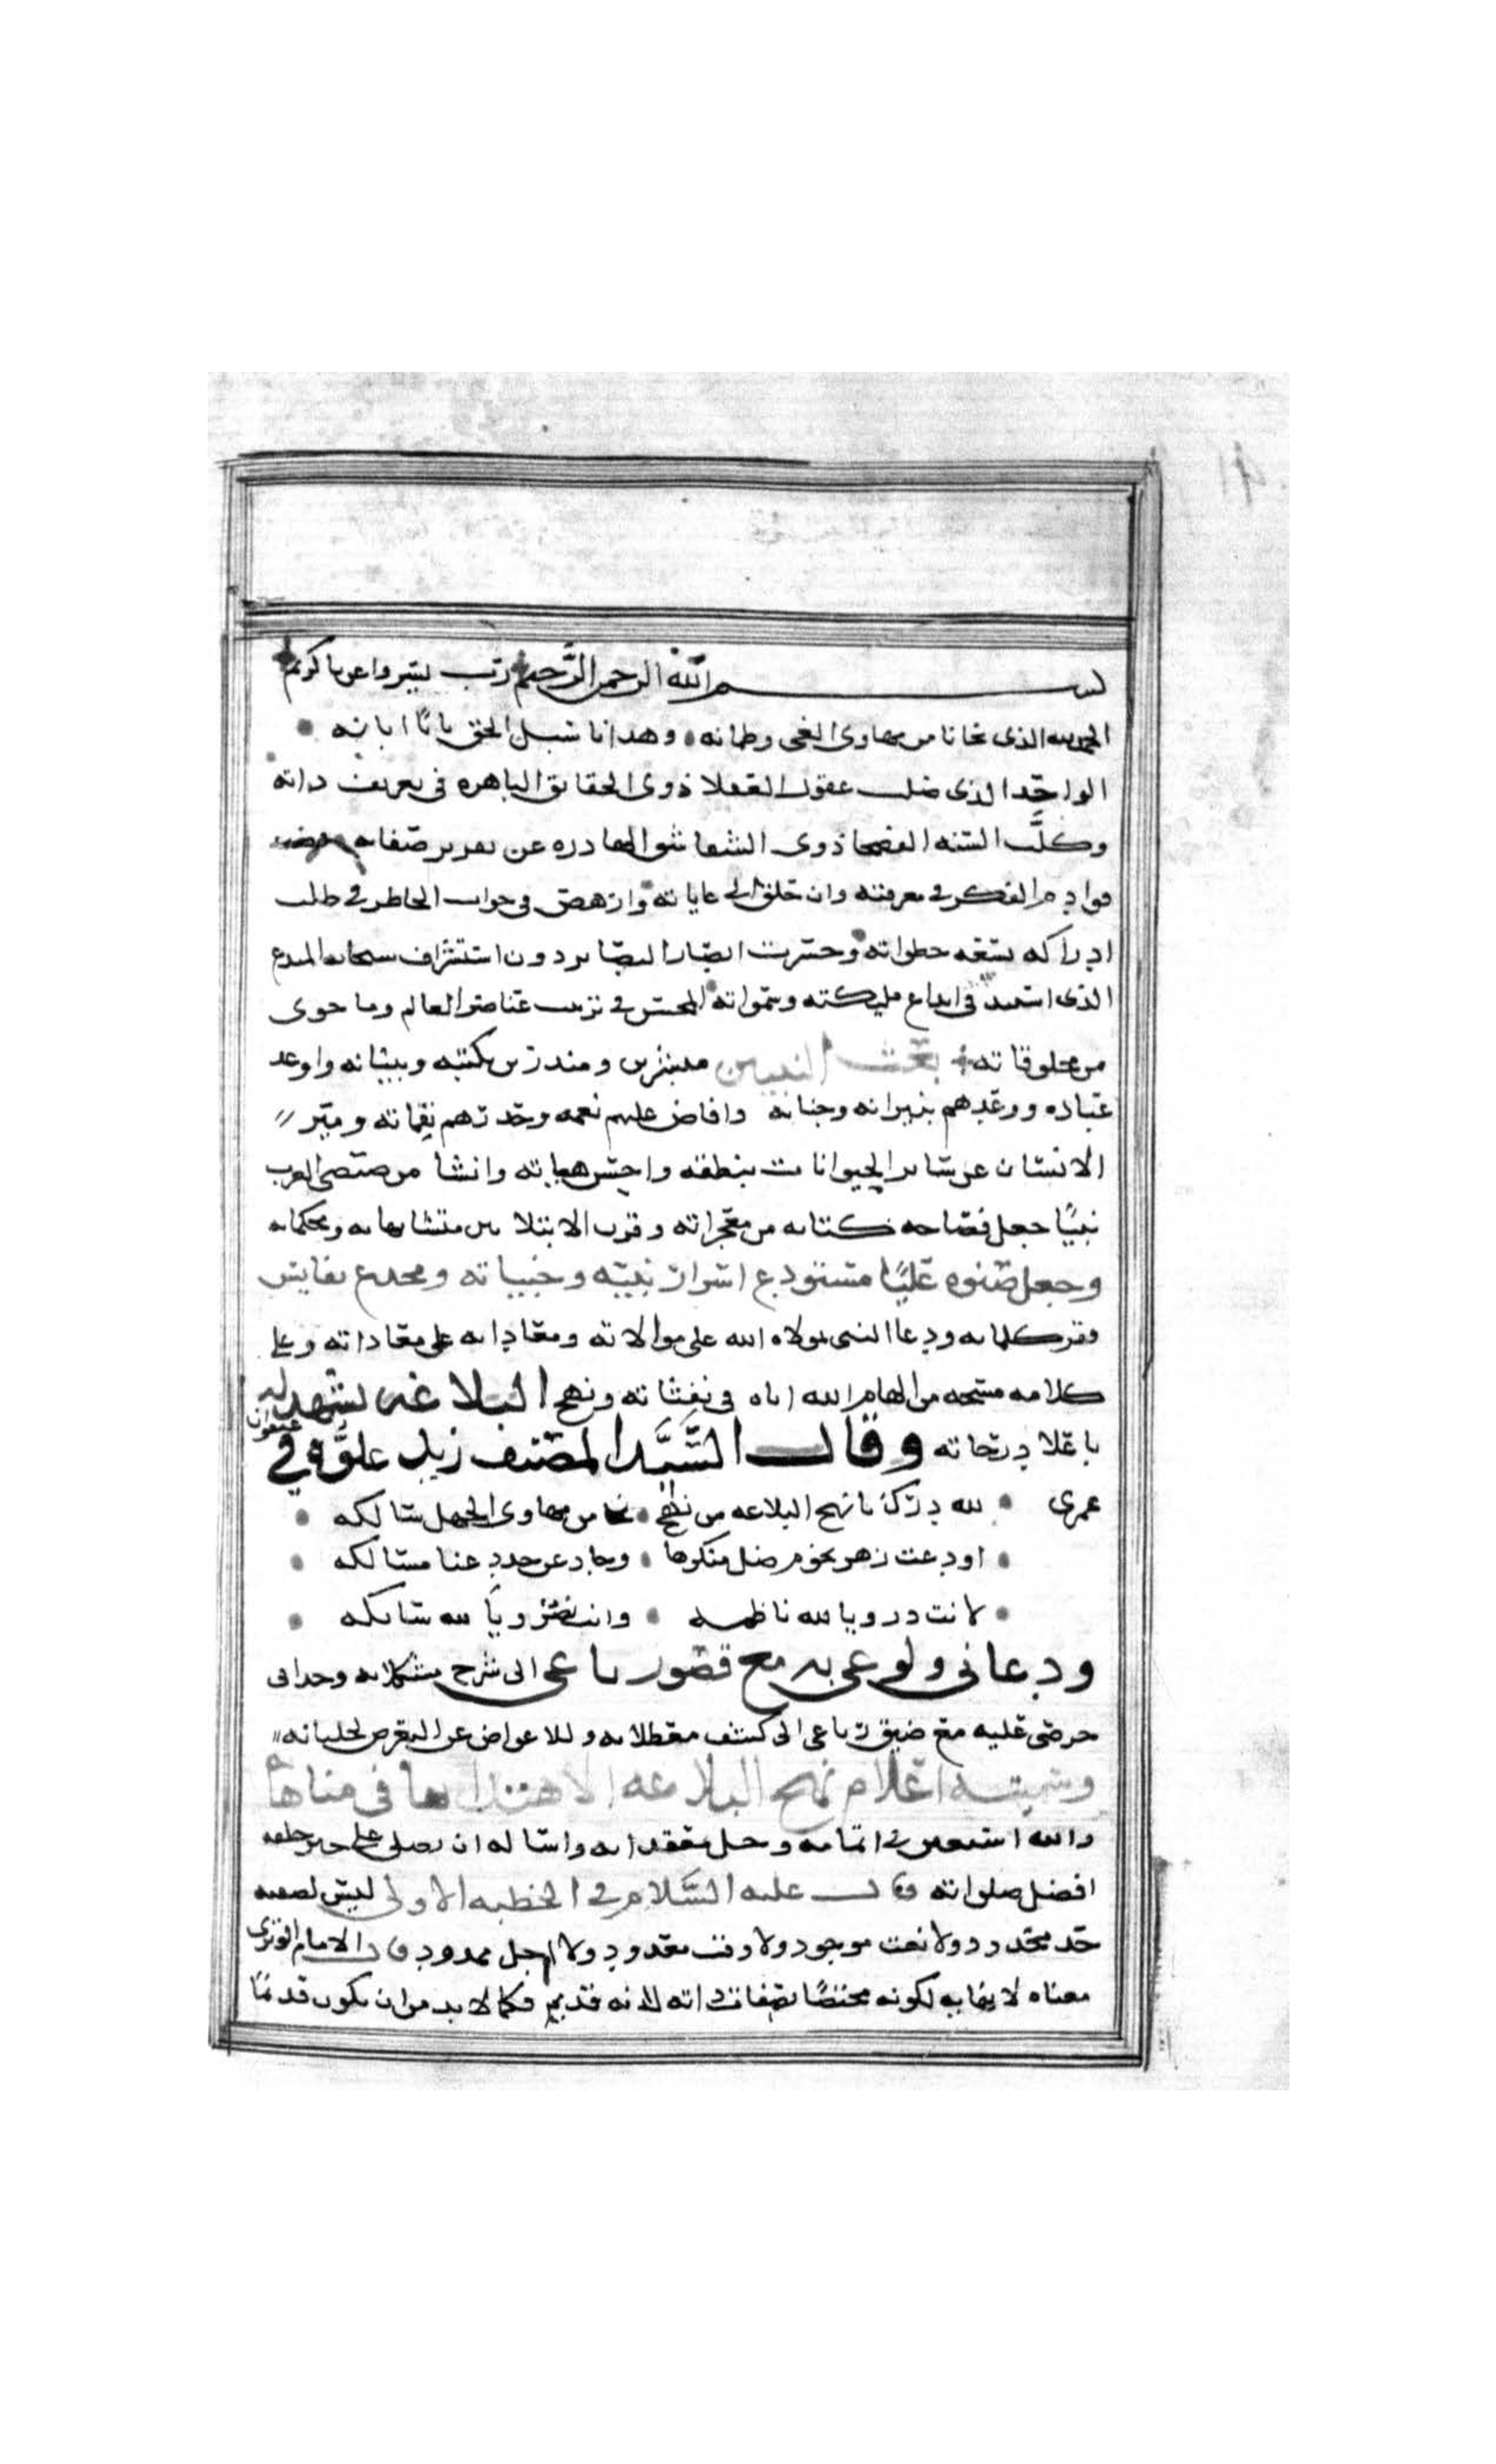 بسم الله الرحمن الرحيم رب يسر واعن يا كريم
الحمد لله الذي نجانا من مهاوي الغي وظلمانه وهدانا سبل الحق بانا ابانه
الواحد الذي ضلت عقول العقلا ذوي الحقايق الباهره في تعريف ذاته
وكلت السنه الفصحا ذوي الشقاشق الهادره عن تعرير صفاته
قوادم الفكر في معرفته وان حلق الى غاياته وان هض في جواب الخاطر في طلب
ادراكه بسعه خطواته وحسرت ابصار البصاير دون استشراف سبحاته المبدع
الذي في ابداع مليكته وسمواته المحسن في ترتيب عناصر العالم وما حوى
من مخلوقاته بعث النبيين مبشرين ومنذرين بكتبه وبيناته واوعد
عباده ووعدهم بنيرانه وجنانه وافاض عليهم نعمه وحذرهم نقماته وميز
الانسان عن ساير الحيوانات بنطقه واحسن هياته وانشا من العرب
نبيا جعل فصاحه كتابه من معجزاته وقرن الابتلا بين متشابهاته ومحكماته
وجعل صنوه عليا مستودع اسرار نبيه وخبياته ومخدع نفايس
وقر كلماته ودعا النبي مولاه الله على موالاته ومعاداته على معاداته وعلى
كلامه مسحه من الهام الله اياه في نفثاته ونهج البلاغه يشهد له
باعلا درجاته وقال السيد المصنف زيد علوه في عنفوان
عمري لله درك يا نهج البلاغه من نهج نجا من مهاوي الجهل سالكه
اودعت زهر نجوم ضل منكرها وحاد عن جدد عنا مسالكه
لانت در ويا لله ناظمه وانت نضر ويا لله سابكه
ودعاني ولوعي به مع قصور باعي الى شرح مشكلاته وحداني
حرصي عليه مع ضيق رباعي الى كشف معضلاته وللاعراض عن التعرض لجلياته
وسميته اعلام نهج البلاغه الاهتدا بها في
والله استعين في اتمامه وحل معقداته واساله ان يصلي على خير خلقه
افضل صلواته قال عليه السلام في الخطبه الاولى ليس لصفته
حد محدود ولا نعت موجود ولا وقت معدود ولا اجل ممدود قال الامام الوبري
معناه لا نهايه لكونه مختصا بصفات ذاته لانه قديم فكما لا بد من ان يكون قديما